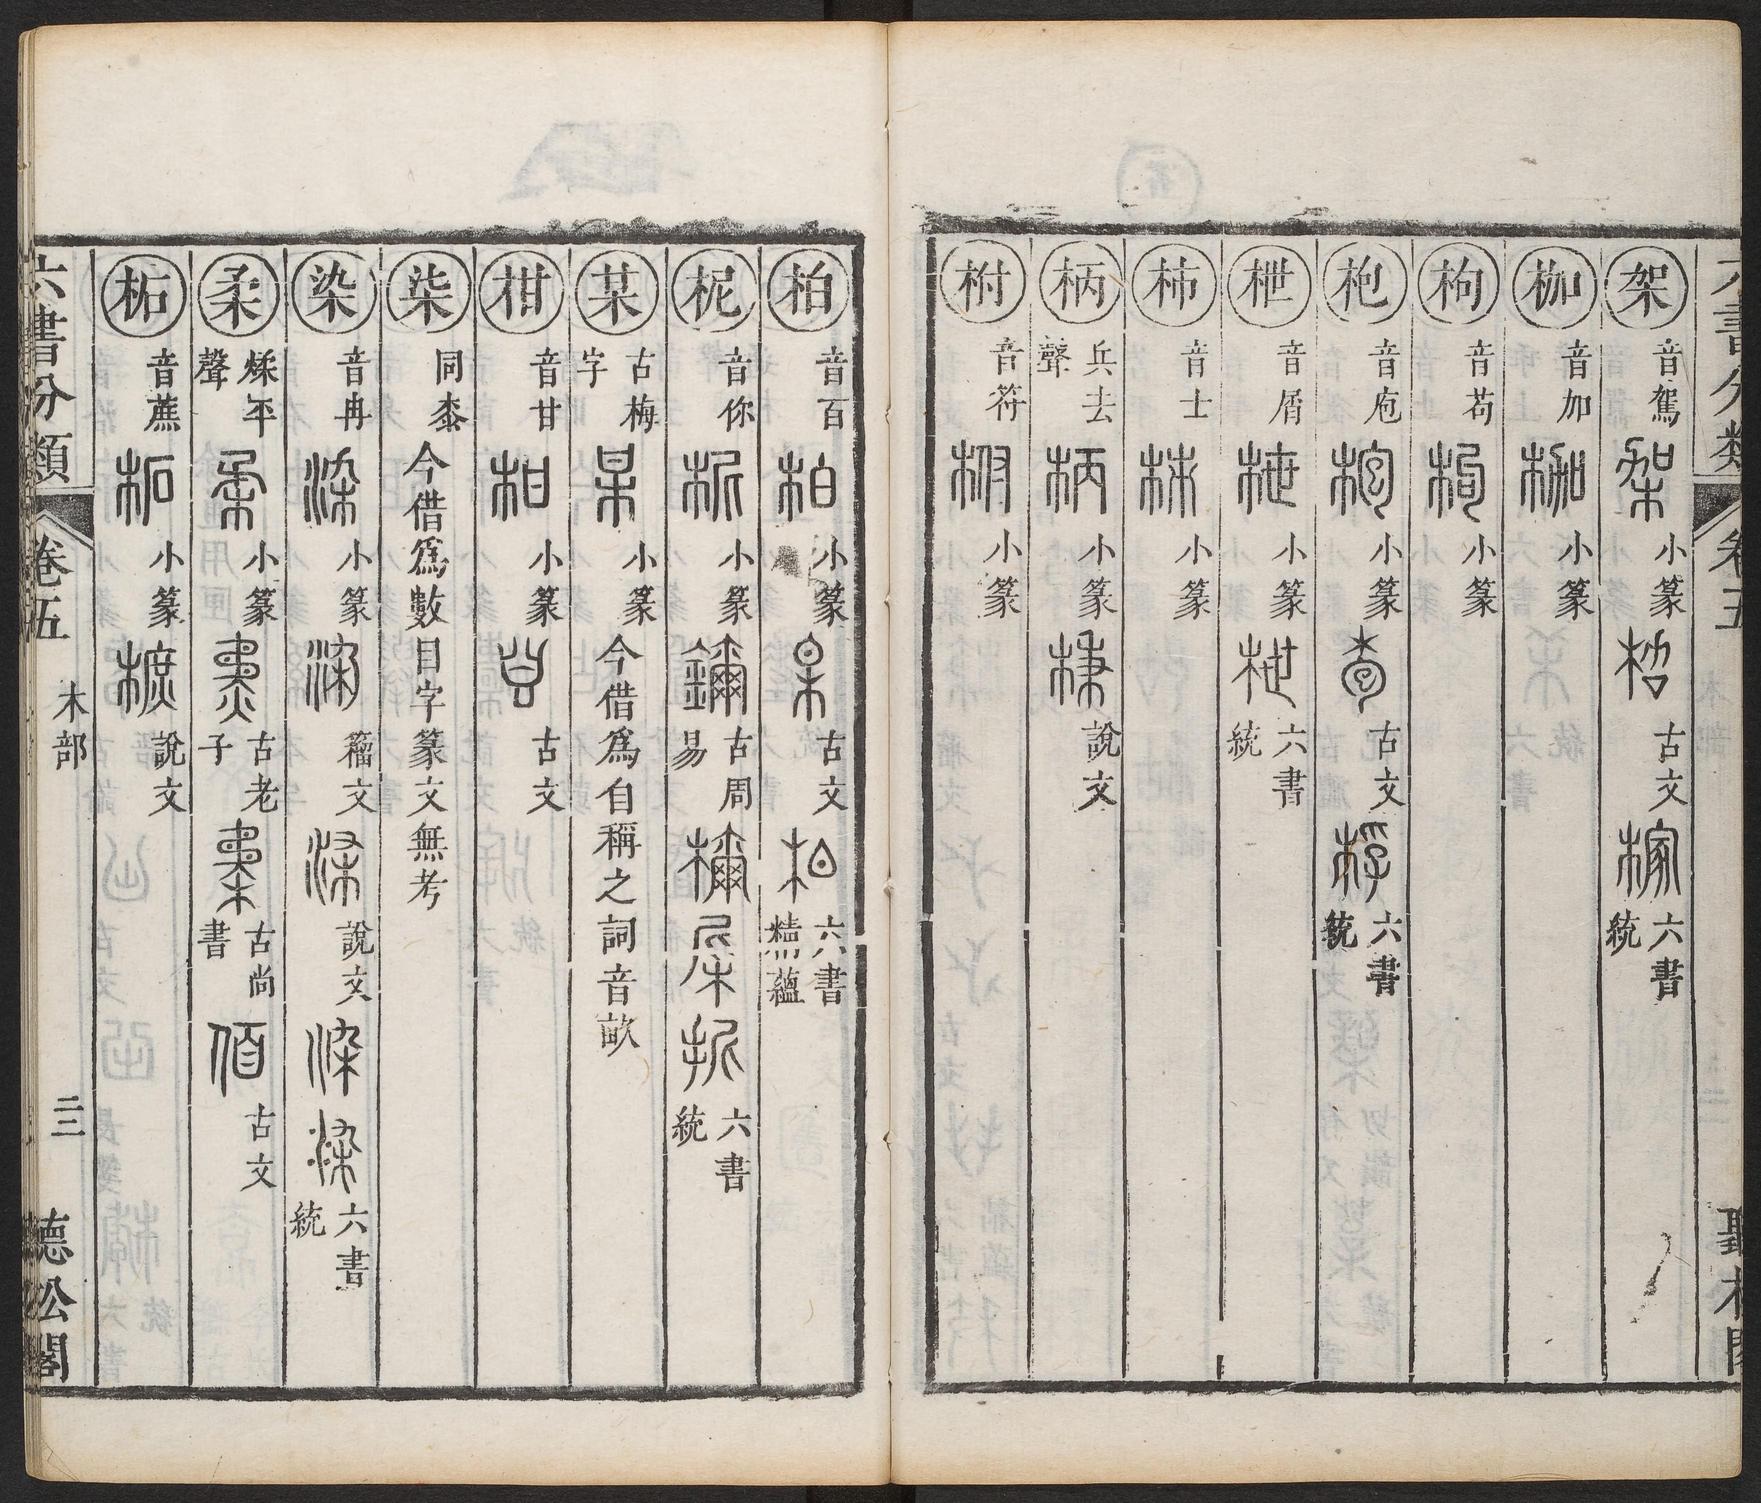 架 音駕 小篆 古文 六書統
枷 音加 小篆
枸 音苟 小篆
枹 音庖 小篆 古文 六書統
枻 音屑 小篆 六書統
柹 音士 小篆
柄 兵去聲 小篆 說文
柎 音符 小篆
柏 音百 小篆 古文 六書精蘊
柅 音你 小篆 古周易 六書統
某 古梅字 小篆 今借爲自稱之詞音畝
柑 音甘 小篆 古文
柒 同桼 今借爲數目字篆文無考
染 音冉 小篆 籀文 說文 六書統
柔 煣平聲 小篆 古老子 古尚書 古文
柘 音蔗 小篆 說文
六書分類 卷五 木部 二三 聽松閣